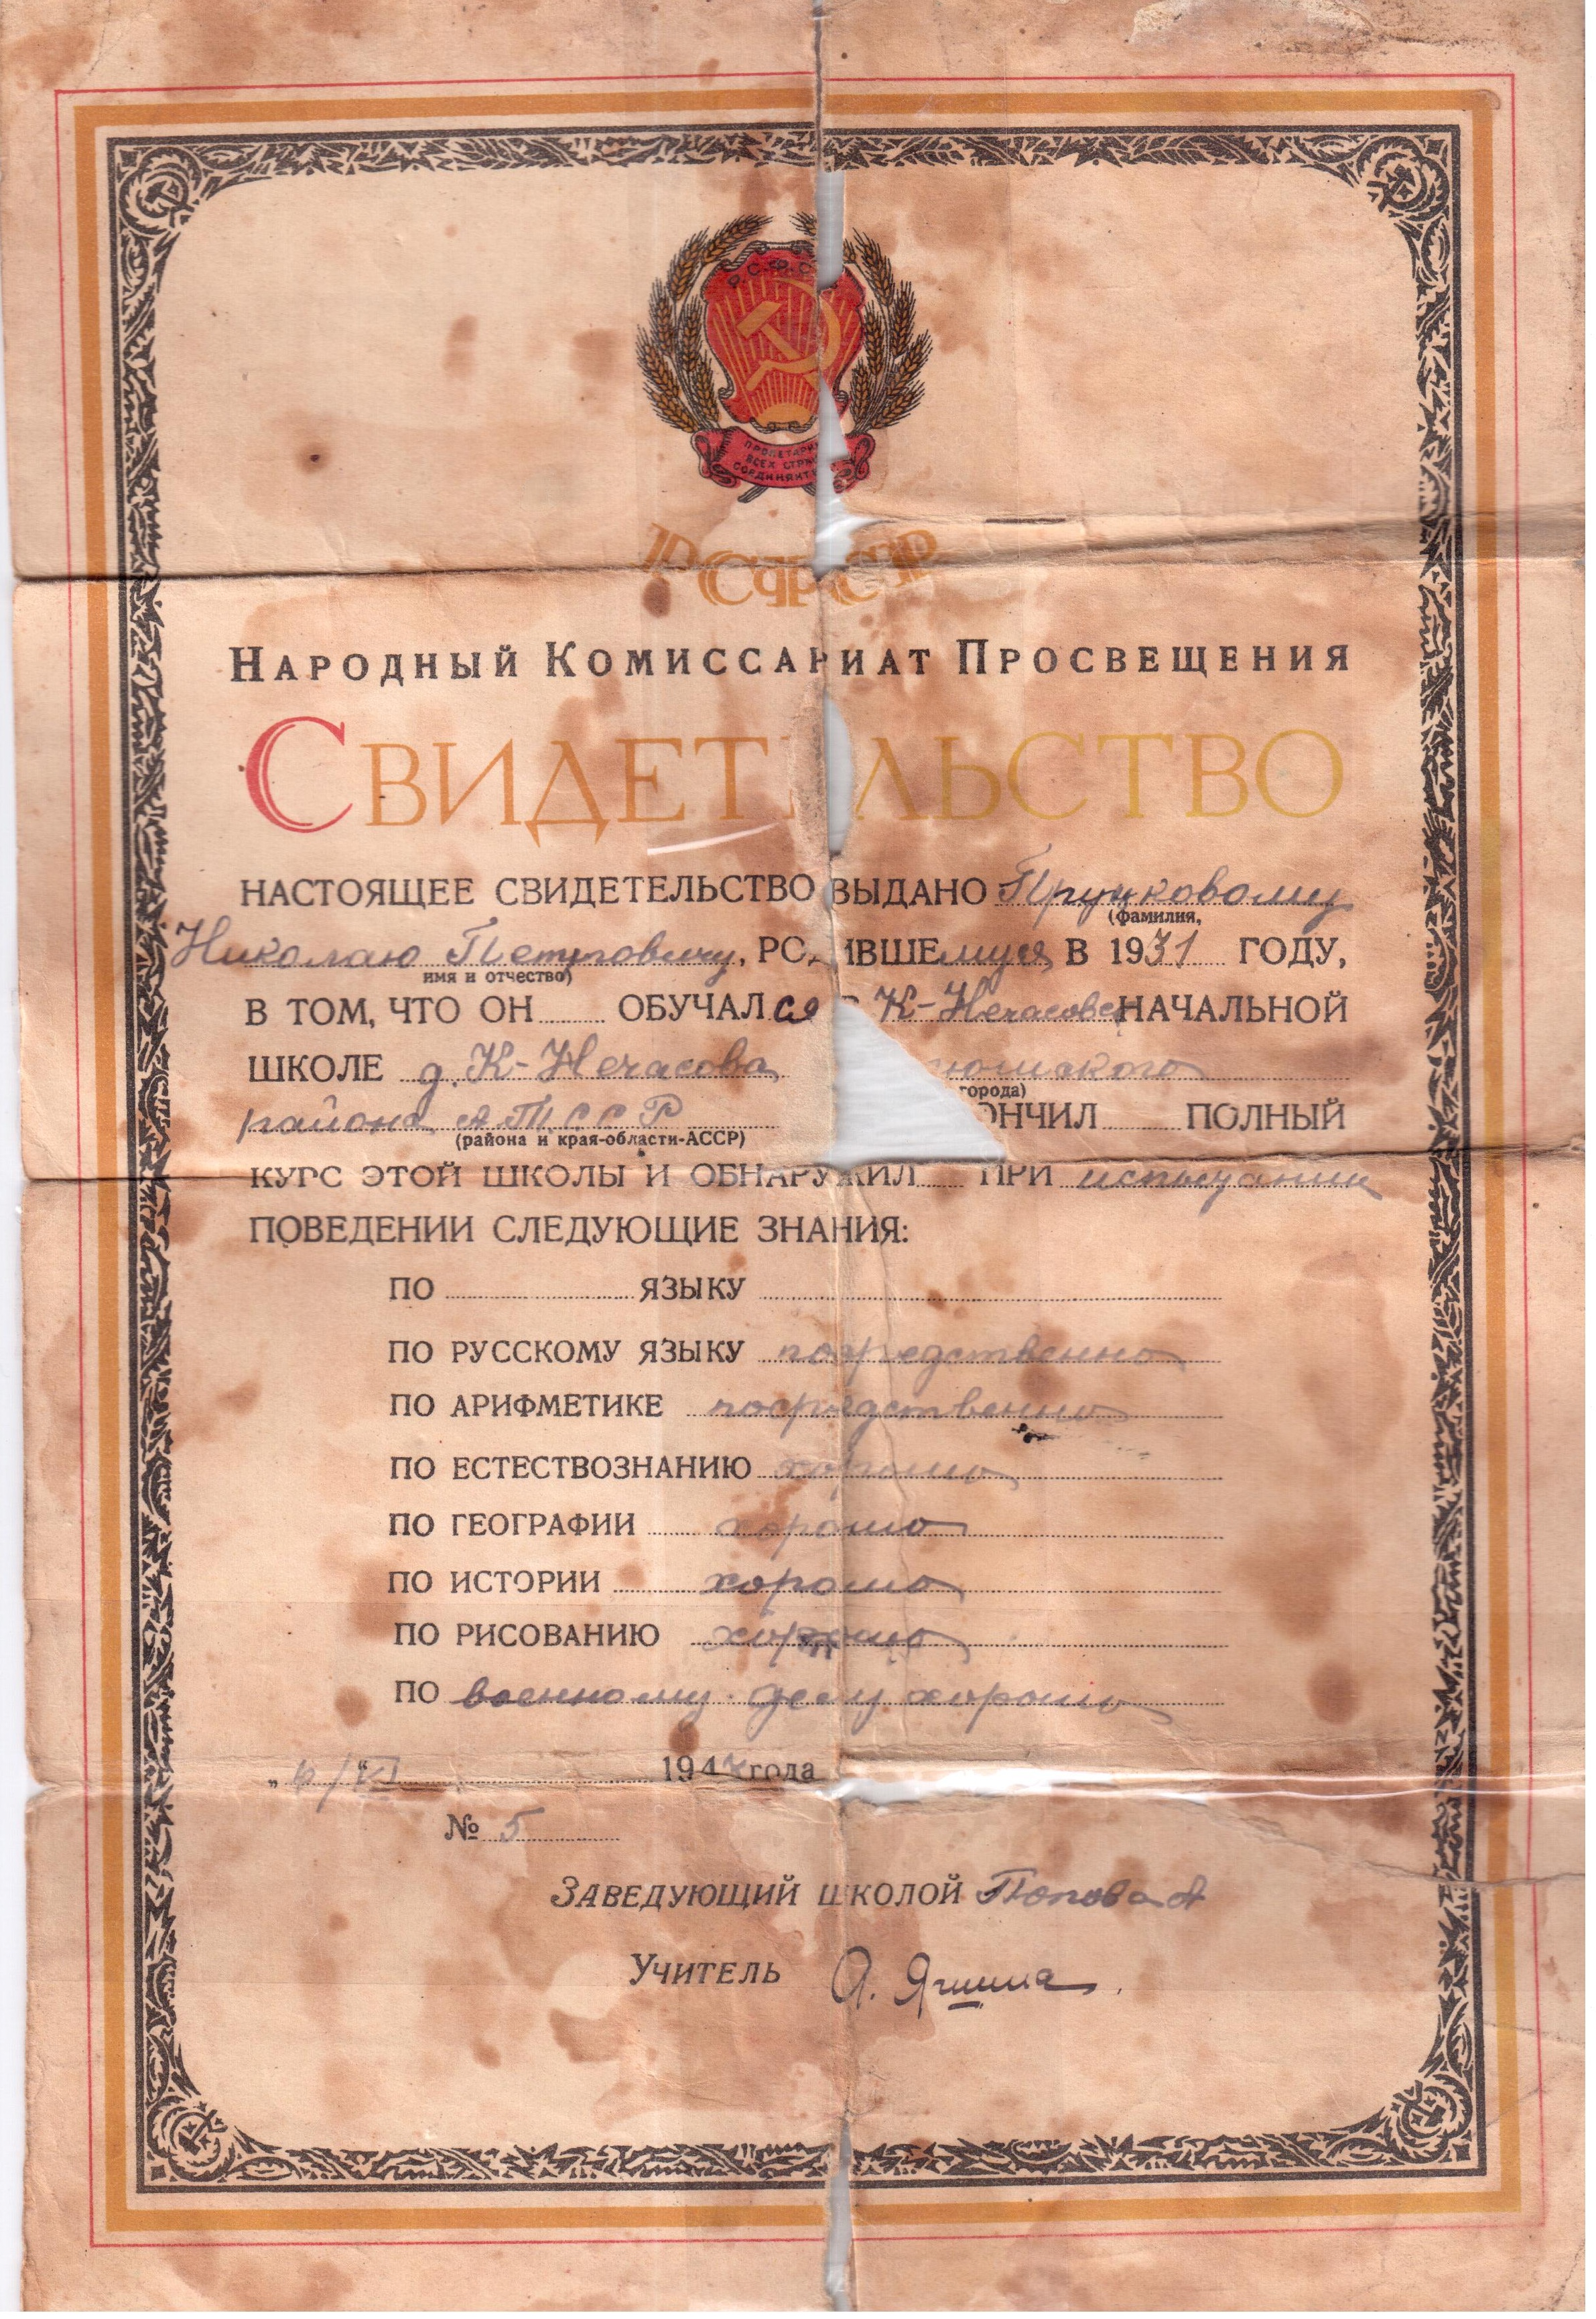 Р.С.Ф.С
ПРОЛЕТАРИ
ВСЕХ СТРАН
СОЕДИНЯЙТЕ
РСФСР
НАРОДНЫЙ КОМИССАРИАТ ПРОСВЕЩЕНИЯ
СВИДЕТЕЛЬСТВО
НАСТОЯЩЕЕ СВИДЕТЕЛЬСТВО ВЫДАНО Пруцковому
(фамилия,
Николаю Петровичу, РОДИВШЕмуся В 1931 ГОДУ,
имя и отчество)
В ТОМ, ЧТО ОН ОБУЧАЛСя В К-Нечасовск НАЧАЛЬНОЙ
ШКОЛЕ д. К-Нечасова юшского
города)
района А.Т.С.С.Р ОНЧИЛ ПОЛНЫЙ
(района и края-области-АССР)
КУРС ЭТОЙ ШКОЛЫ И ОБНАРУЖИЛ ПРИ испытании
ПОВЕДЕНИИ СЛЕДУЮЩИЕ ЗНАНИЯ:
ПО ЯЗЫКУ
ПО РУССКОМУ ЯЗЫКУ посредственно
ПО АРИФМЕТИКЕ посредственно
ПО ЕСТЕСТВОЗНАНИЮ хорошо
ПО ГЕОГРАФИИ хорошо
ПО ИСТОРИИ хорошо
ПО РИСОВАНИЮ хорошо
ПО военному делу хорошо
/VI 194 года
№ 5
ЗАВЕДУЮЩИЙ ШКОЛОЙ Попова А
УЧИТЕЛЬ А. Яшина